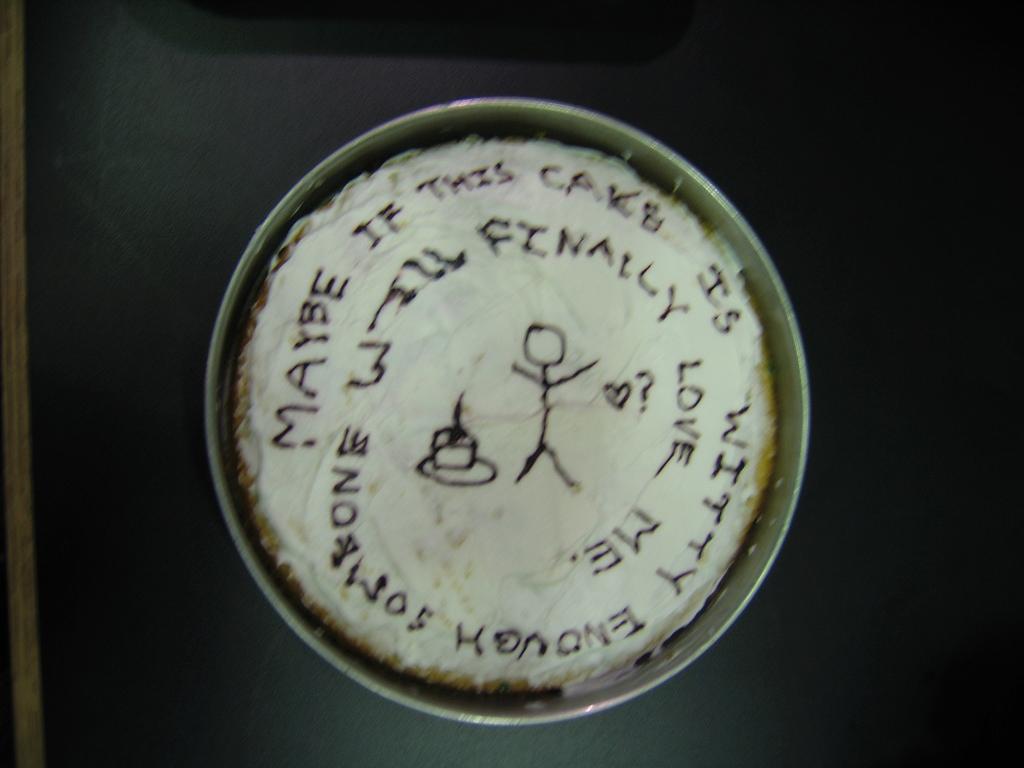 MAYBE IF THIS CAKE IS WITTY ENOUGH SOMEONE WILL FINALLY LOVE ME.